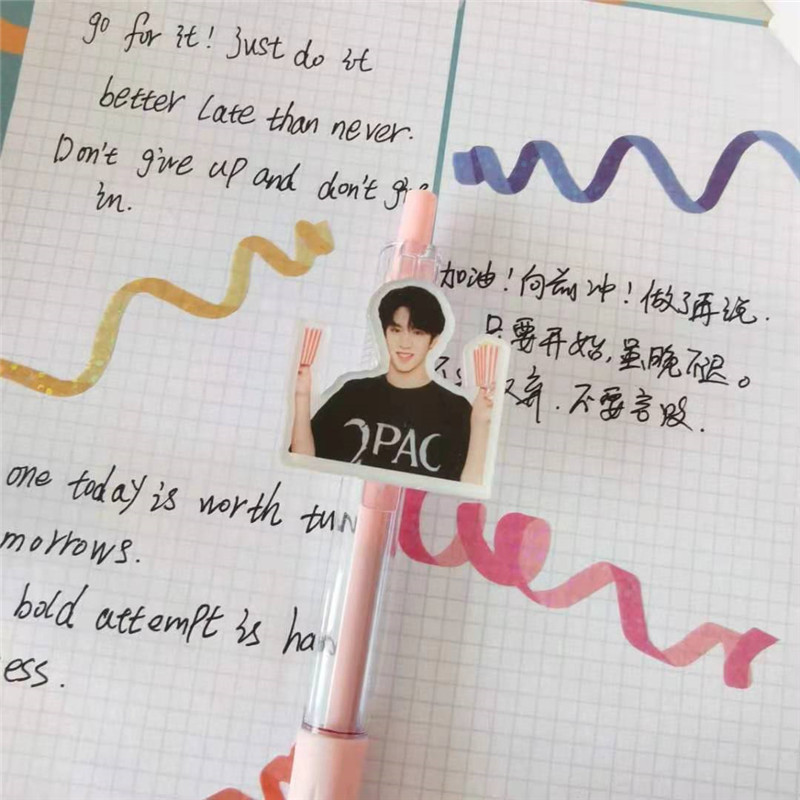 go for it! Just do it
better late than never.
Don't give up and don't
in.
加油！向前冲！做了再说.
只要开始,虽晚不迟。
不 弃.不要言败.
2PAC
one today is worth
morrows.
bold attempt is
ess.